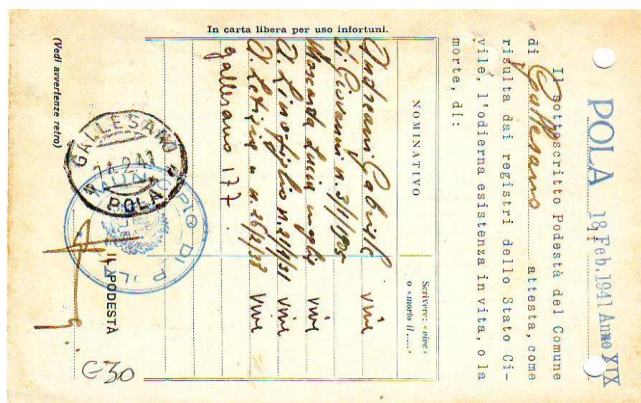 POLA 18 Feb. 1941 Anno XIX
Il sottoscritto Podestà del Comune
di Gallesano attesta, come
risulta dai registri dello Stato Ci-
vile, l'odierna esistenza in vita, o la
morte, di:
NOMINATIVO
Scrivere: «vive»
o «morto il .....»
Gabriele vive
di Giovanni n. 3/1/1905
Moscarda Lucia moglie vive
D. Lino figlio n. 21/9/31 vive
D. Letizia n. 26/2/38 vive
Gallesano 177
In carta libera per uso infortuni.
IL PODESTÀ
GALLESANO
POLA
DI POLA
(Vedi avvertenze retro)
G30